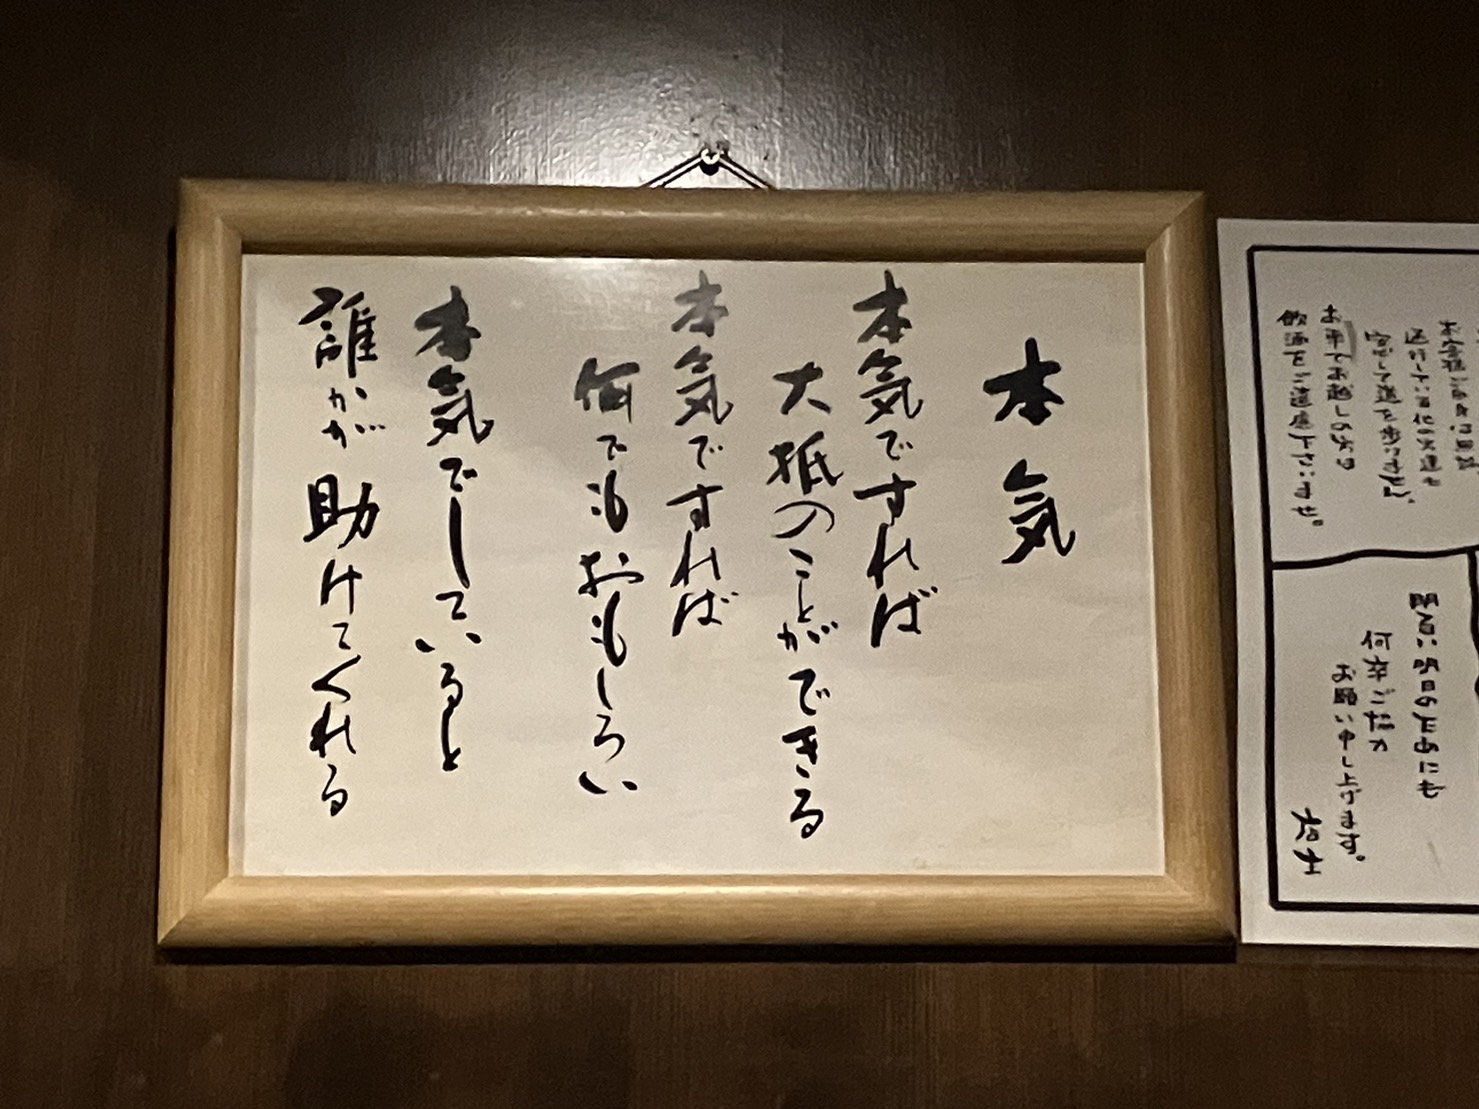 本気
本気ですれば
大抵のことができる
本気ですれば
何でもおもしろい
本気でしていると
誰かが助けてくれる
お車でお越しの方は
飲酒をご遠慮下さいませ。
明るい明日のためにも
何卒ご協力
お願い申し上げます。